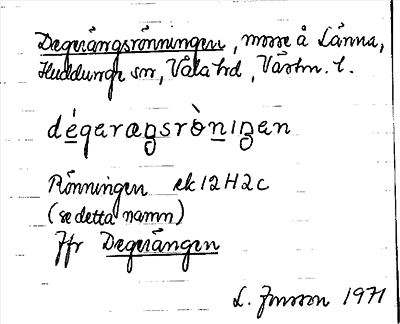 Degerängsrönningen, mosse å Länna,
Huddunge sn, Våla hd, Västm. l.
dégeraŋsròniŋen
Rönningen ek 12 H 2 c
(se detta namn)
Jfr Degerängen
L. Jonsson 1971